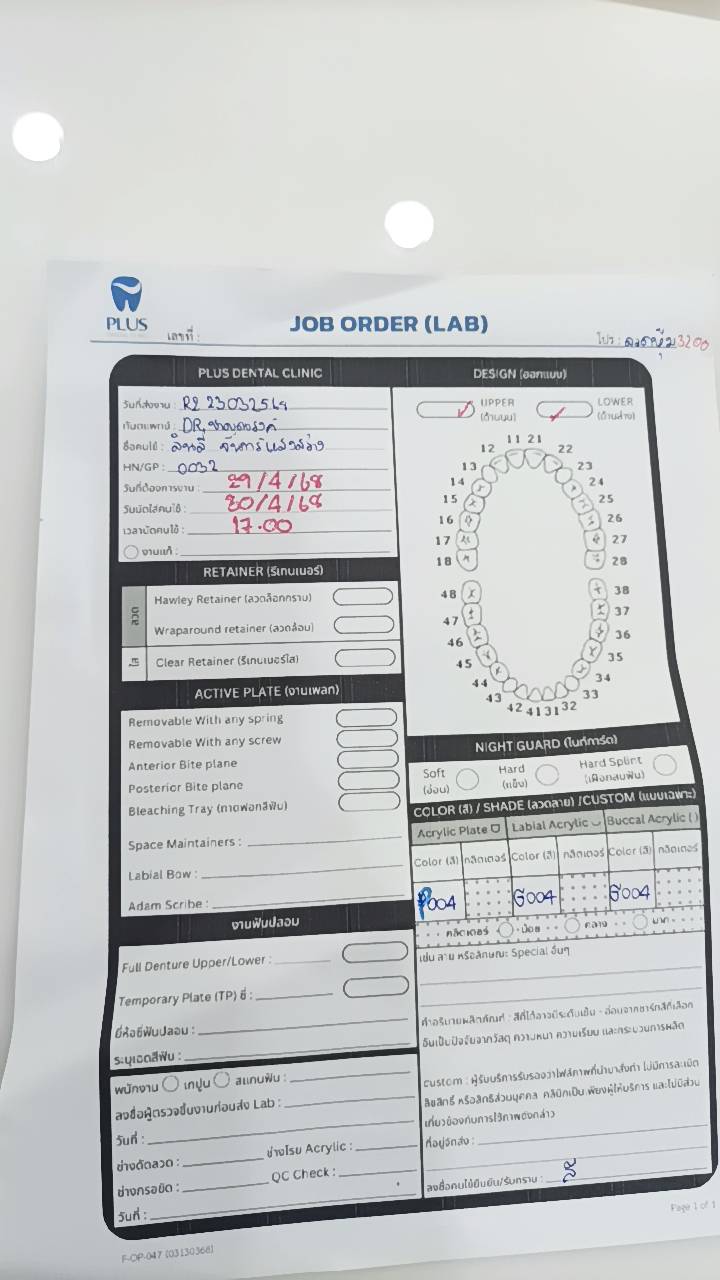 PLUS
เลขที่ :
JOB ORDER (LAB)
โปร : 3200
PLUS DENTAL CLINIC
วันที่ส่งงาน : R2 23032569
ทันตแพทย์ : DR.
ชื่อคนไข้ :
HN/GP : 0032
วันที่ต้องการงาน : 29/4/68
วันนัดใส่คนไข้ : 30/4/68
เวลานัดคนไข้ : 17.00
งานแก้ :
RETAINER (รีเทนเนอร์)
ลวด
Hawley Retainer (ลวดล็อกกราม)
Wraparound retainer (ลวดล้อม)
ใส
Clear Retainer (รีเทนเนอร์ใส)
ACTIVE PLATE (งานเพลท)
Removable With any spring
Removable With any screw
Anterior Bite plane
Posterior Bite plane
Bleaching Tray (ถาดฟอกสีฟัน)
Space Maintainers :
Labial Bow :
Adam Scribe :
งานฟันปลอม
Full Denture Upper/Lower :
Temporary Plate (TP) ซี่ :
ยี่ห้อซี่ฟันปลอม :
ระบุเฉดสีฟัน :
พนักงาน เทปูน สแกนฟัน :
ลงชื่อผู้ตรวจชิ้นงานก่อนส่ง Lab :
วันที่ :
ช่างดัดลวด : ช่างโรย Acrylic :
ช่างกรอขัด : QC Check :
วันที่ :
F-OP-047 (03130368)
DESIGN (ออกแบบ)
UPPER (ด้านบน) LOWER (ด้านล่าง)
11 21
12 22
13 23
14 24
15 25
16 26
17 27
18 28
48 38
47 37
46 36
45 35
44 34
43 33
42 41 31 32
NIGHT GUARD (ไนท์การ์ด)
Soft (อ่อน) Hard (แข็ง) Hard Splint (เฝือกสบฟัน)
COLOR (สี) / SHADE (ลวดลาย) /CUSTOM (แบบเฉพาะ)
Acrylic Plate Labial Acrylic Buccal Acrylic ( )
Color (สี) กลิตเตอร์ Color (สี) กลิตเตอร์ Color (สี) กลิตเตอร์
P004 G004 G004
กลิตเตอร์ น้อย กลาง มาก
เช่น ลาย หรือลักษณะ Special อื่นๆ
คำอธิบายผลิตภัณฑ์ : สีที่ได้อาจมีระดับเข้ม - อ่อนจากชาร์ทสีที่เลือก
อันเป็นปัจจัยจากวัสดุ ความหนา ความเรียบ และกระบวนการผลิต
custom : ผู้รับบริการรับรองว่าไฟล์ภาพที่นำมาสั่งทำ ไม่มีการละเมิด
ลิขสิทธิ์ หรือสิทธิส่วนบุคคล คลินิกเป็นเพียงผู้ให้บริการ และไม่มีส่วน
เกี่ยวข้องกับการใช้ภาพดังกล่าว
ที่อยู่จัดส่ง :
ลงชื่อคนไข้ยืนยัน/รับทราบ :
Page 1 of 1